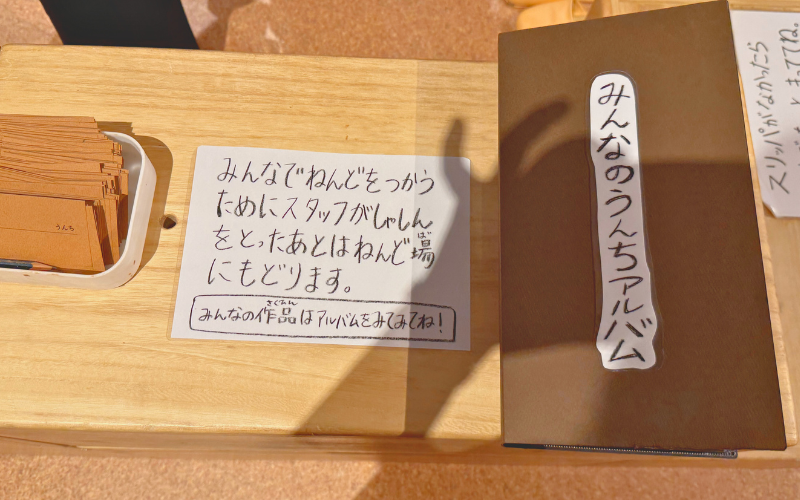 うんち
みんなでねんどをつかう
ためにスタッフがしゃしん
をとったあとはねんど場
ば
にもどります。
さくひん
みんなの作品はアルバムをみてみてね！
みんなのうんちアルバム
スリッパがなかったら